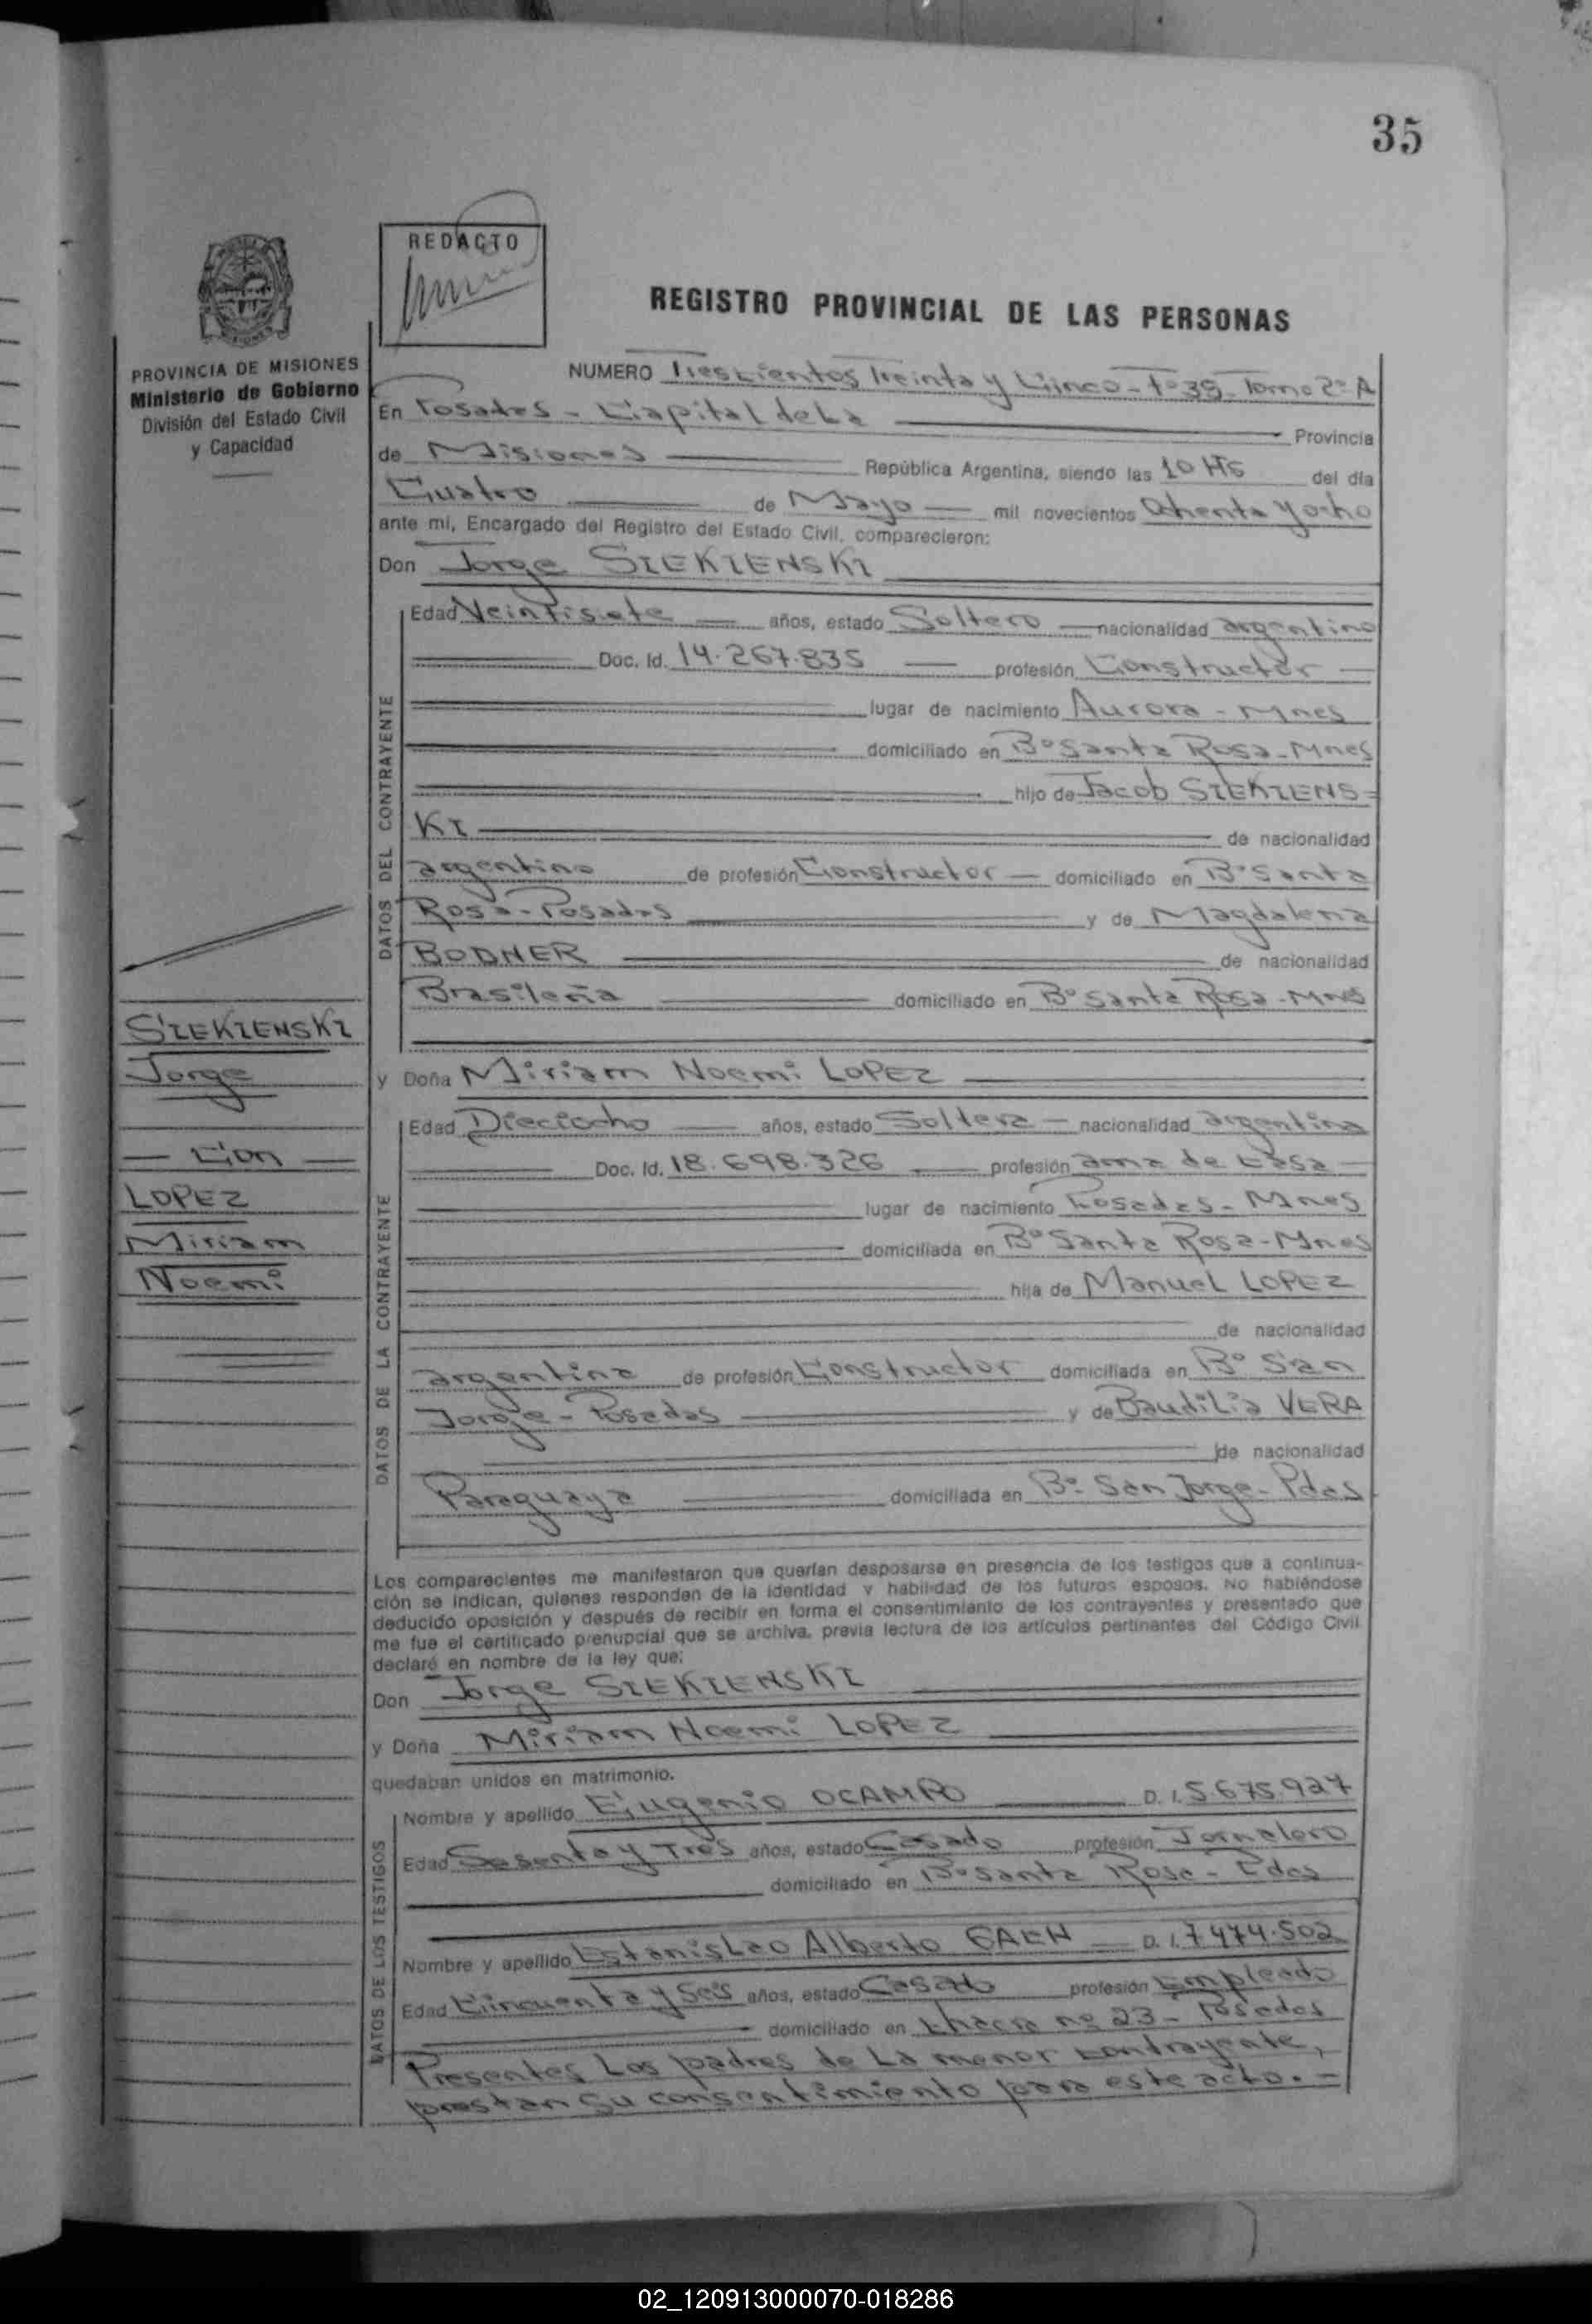 35
REDACTO
REGISTRO PROVINCIAL DE LAS PERSONAS
PROVINCIA DE MISIONES
Ministerio de Gobierno
División del Estado Civil
y Capacidad
NUMERO Trescientos Treinta y Cinco - Fº 35 - Tomo 2º A
En Posadas - Capital de La Provincia
de Misiones República Argentina, siendo las 10 Hs del día
Cuatro de Mayo mil novecientos Ochenta y ocho
ante mi, Encargado del Registro del Estado Civil, comparecieron:
Don Jorge SIEKIENSKI
DATOS DEL CONTRAYENTE
Edad Veintisiete años, estado Soltero nacionalidad argentino
Doc. Id. 14.267.835 profesión Constructor
lugar de nacimiento Aurora - Mnes
domiciliado en Bº Santa Rosa - Mnes
hijo de Jacob SIEKIENS=
KI de nacionalidad
argentino de profesión Constructor domiciliado en Bº Santa
Rosa - Posadas y de Magdalena
BODNER de nacionalidad
Brasileña domiciliado en Bº Santa Rosa - Mnes
SIEKIENSKI
Jorge
Con
LOPEZ
Miriam
Noemi
y Doña Miriam Noemi LOPEZ
DATOS DE LA CONTRAYENTE
Edad Dieciocho años, estado Soltera nacionalidad argentina
Doc. Id. 18.698.326 profesión ama de casa
lugar de nacimiento Posadas - Mnes
domiciliada en Bº Santa Rosa - Mnes
hija de Manuel LOPEZ
de nacionalidad
argentina de profesión Constructor domiciliada en Bº San
Jorge - Posadas y de Baudilia VERA
de nacionalidad
Paraguaya domiciliada en Bº San Jorge - Pdas
Los comparecientes me manifestaron que querían desposarse en presencia de los testigos que a continua-
ción se indican, quienes responden de la identidad y habilidad de los futuros esposos. No habiéndose
deducido oposición y después de recibir en forma el consentimiento de los contrayentes y presentado que
me fue el certificado prenupcial que se archiva, previa lectura de los artículos pertinentes del Código Civil
declaré en nombre de la ley que:
Don Jorge SIEKIENSKI
y Doña Miriam Noemi LOPEZ
quedaban unidos en matrimonio.
DATOS DE LOS TESTIGOS
Nombre y apellido Eugenio OCAMPO D.I. 5.675.927
Edad Sesenta y Tres años, estado Casado profesión Jornalero
domiciliado en Bº Santa Rosa - Pdas
Nombre y apellido Estanislao Alberto D.I. 7474.502
Edad Cincuenta y Seis años, estado Casado profesión Empleado
domiciliado en Chacra nº 23 - Posadas
Presentes Los padres de La menor contrayente,
prestan su consentimiento para este acto. -
02_120913000070-018286